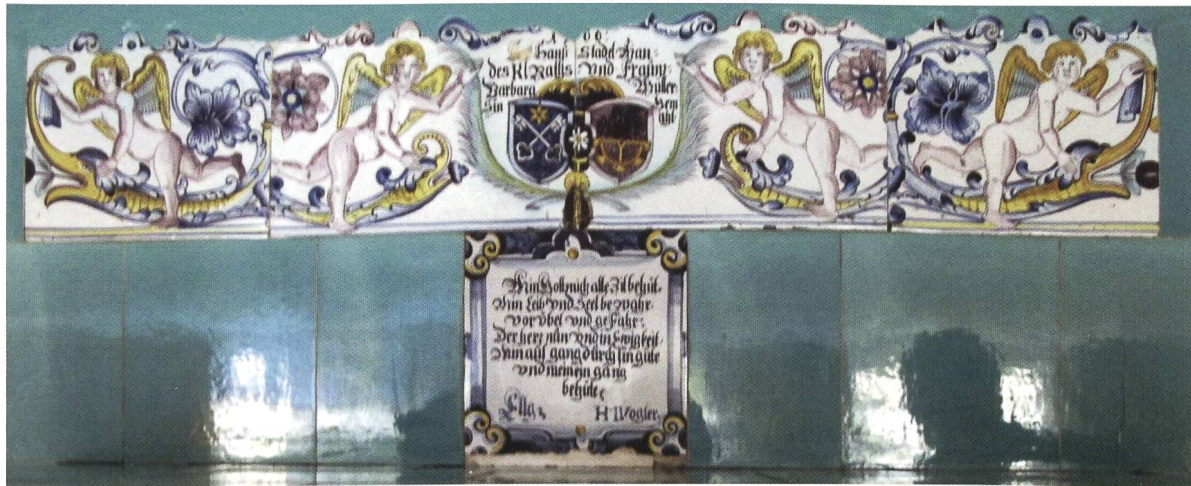 Hans Stadelman
des Kl Raths und frauw
Barbara Müller
Sin Gem
ahl
Min Gott mich alle Zit behüt.
Min Leib und Seel bewahr
vor übel und gefahr:
Der herr nun und in Ewigkeit
Min auß gang durch sin güte
und mein ein gang
behüte.
H Vogler.